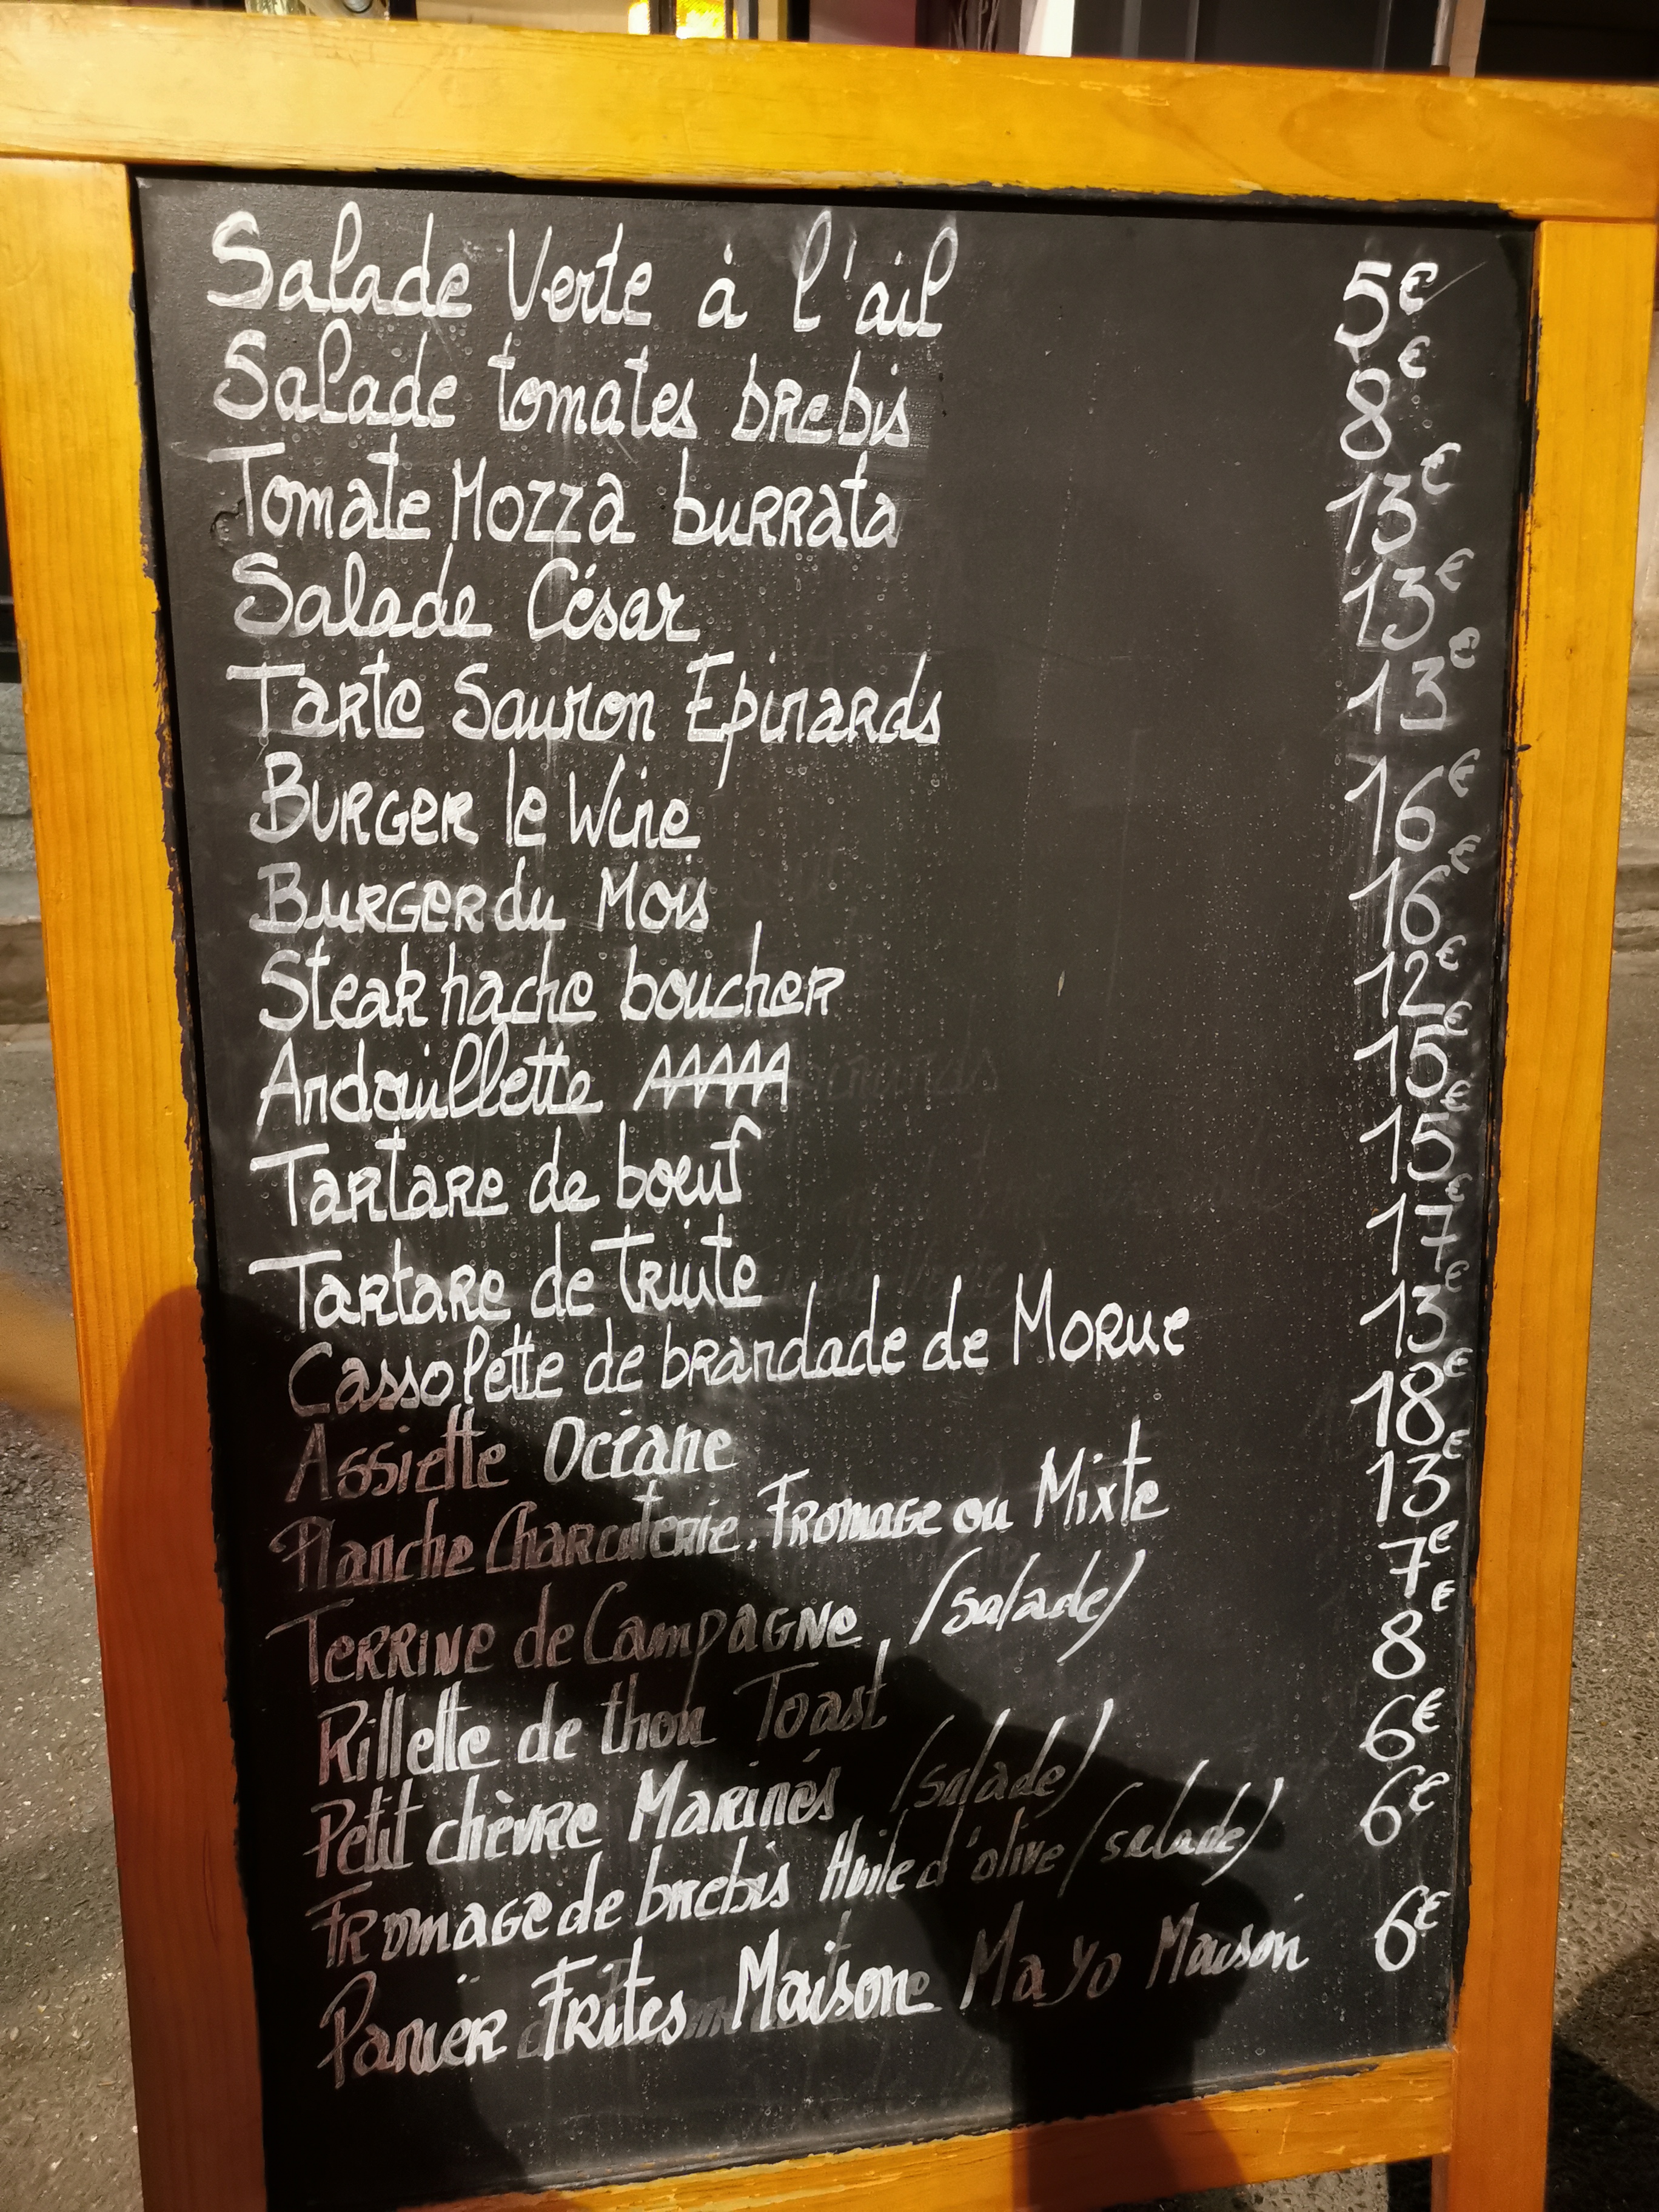 Salade Verte à l'ail 5€
Salade tomates brebis 8€
Tomate Mozza burrata 13€
Salade César 13€
Tarte Saumon Epinards 13€
Burger le Wine 16€
Burger du Mois 16€
Steak hache boucher 12€
Andouillette AAAAA 15€
Tartare de boeuf 15€
Tartare de Truite 17€
Cassolette de brandade de Morue 13€
Assiette Océane 18€
Planche Charcuterie, Fromage ou Mixte 13€
Terrine de Campagne (salade) 7€
Rillette de thon Toast 8€
Petit chèvre Marinés (salade) 6€
Fromage de brebis Huile d'olive (salade) 6€
Panier Frites Maison Mayo Maison 6€